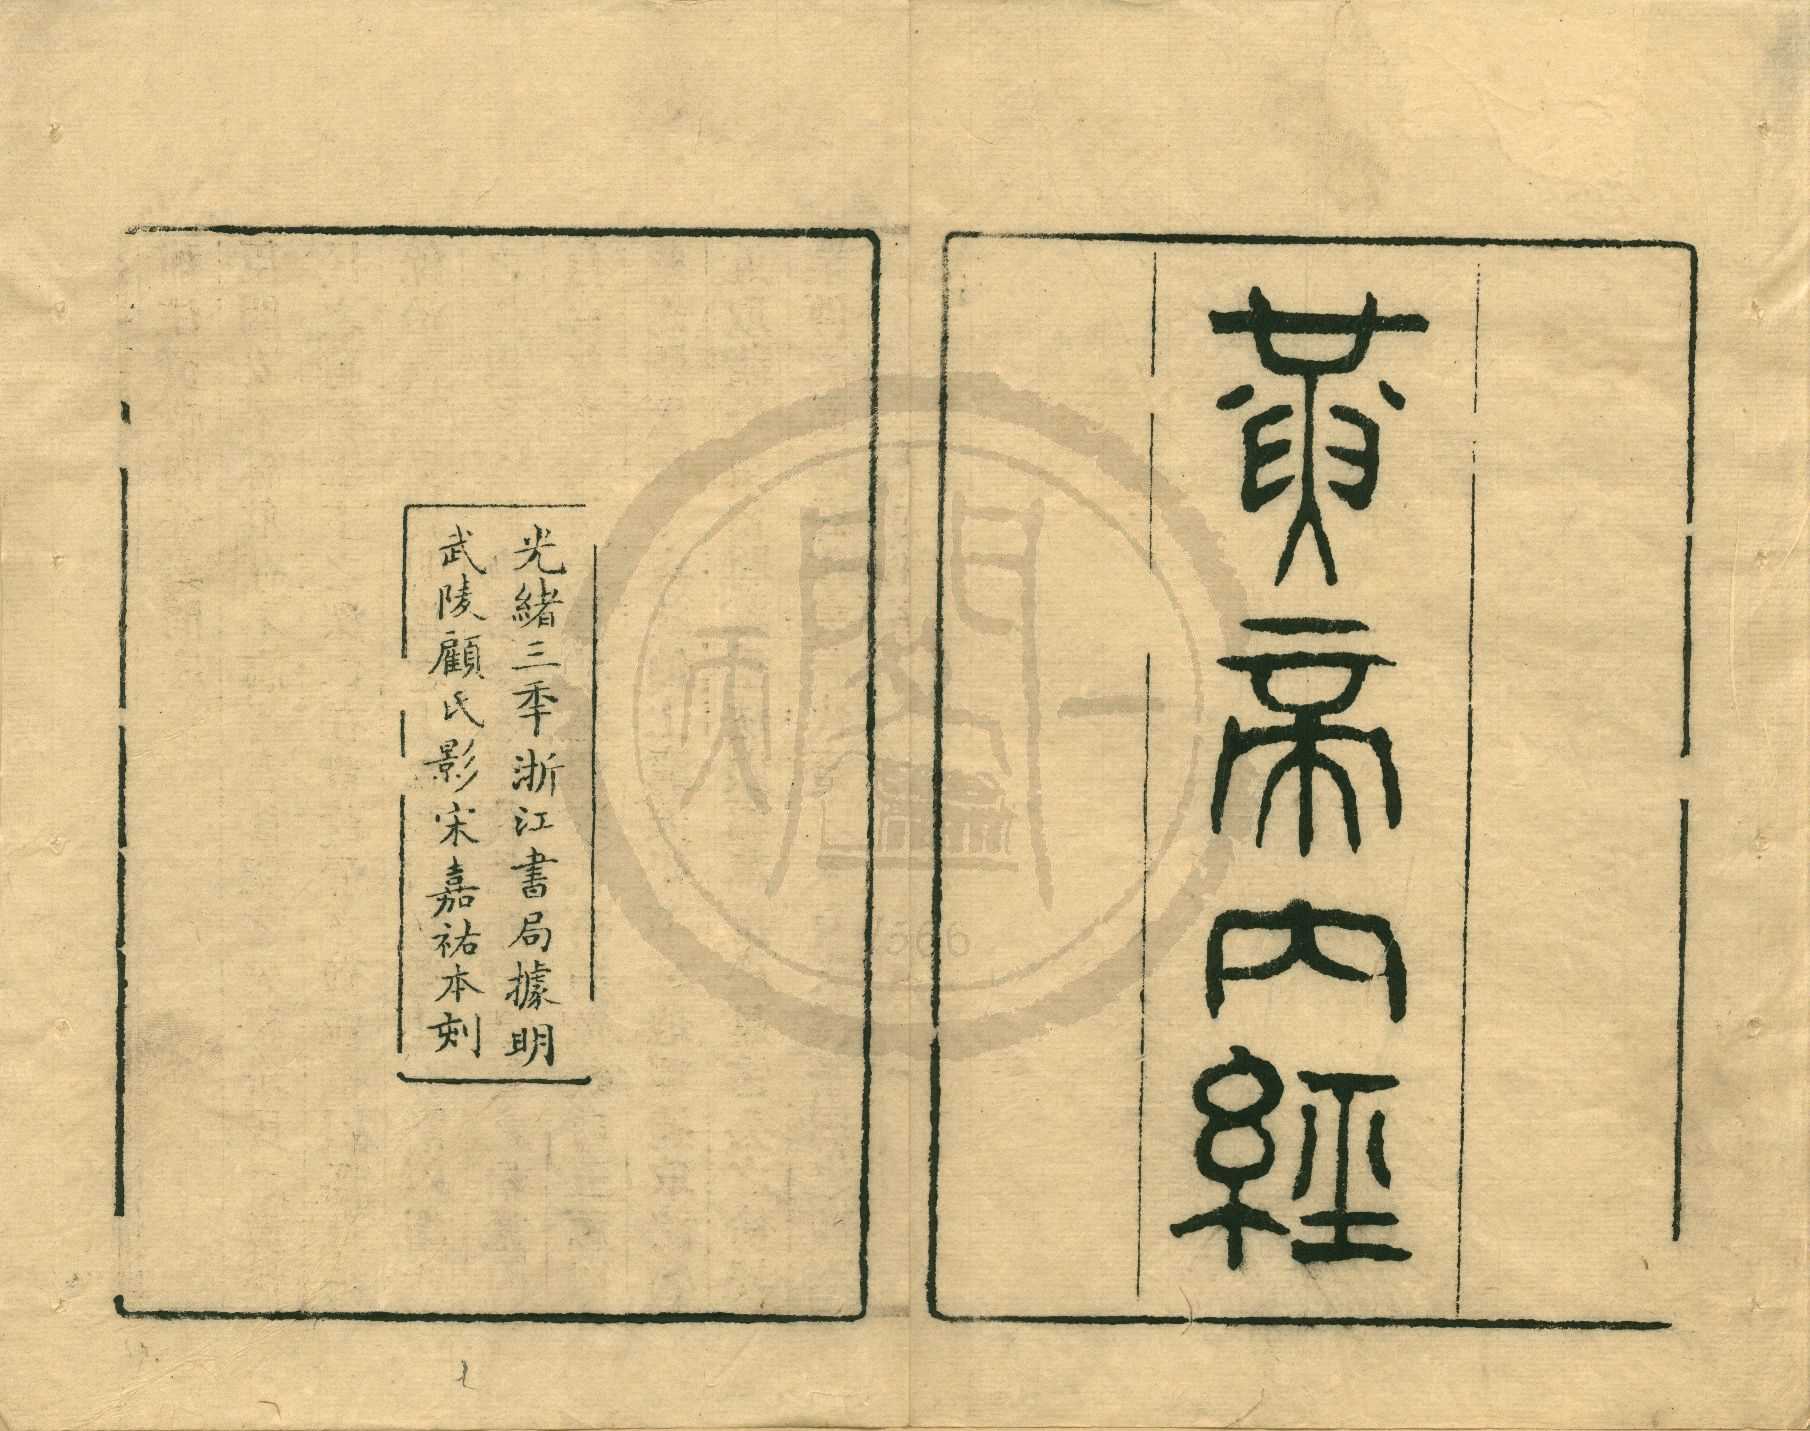 黃帝內經
光緒三年浙江書局據明
武陵顧氏影宋嘉祐本刻
天一閣
1566